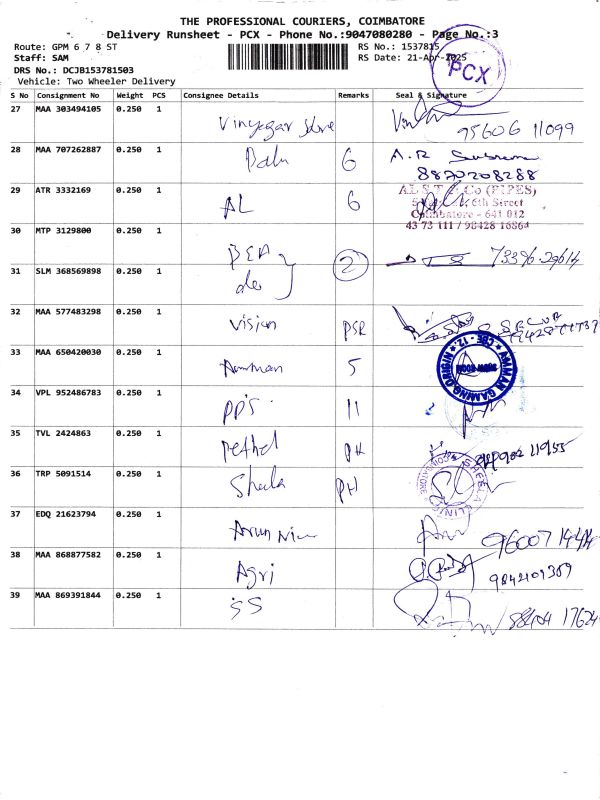 THE PROFESSIONAL COURIERS, COIMBATORE
Delivery Runsheet - PCX - Phone No.:9047080280 - Page No.:3
Route: GPM 6 7 8 ST
RS No.: 1537815
Staff: SAM
RS Date: 21-Apr-2025
PCX
DRS No.: DCJB153781503
Vehicle: Two Wheeler Delivery
S No Consignment No Weight PCS Consignee Details Remarks Seal & Signature
27 MAA 303494105 0.250 1 Vinyagar Store 95606 11099
28 MAA 707262887 0.250 1 6 A.R
8870208288
29 ATR 3332169 0.250 1 AL 6
AL S T & Co (PIPES)
6th Street
Coimbatore - 641 012
43 73 111 / 98428 16864
30 MTP 3129800 0.250 1
31 SLM 368569898 0.250 1 2
32 MAA 577483298 0.250 1 Vision PSR
33 MAA 650420030 0.250 1 Amman 5
AMMAN GAMING CBE - 12
34 VPL 952486783 0.250 1 PPS 11
35 TVL 2424863 0.250 1 Pethal PH
36 TRP 5091514 0.250 1 Sheela PH
SHEELA CLINIC COIMBATORE
37 EDQ 21623794 0.250 1 Arun
38 MAA 868877582 0.250 1 Agri 9842101309
39 MAA 869391844 0.250 1 SS 88404 17624